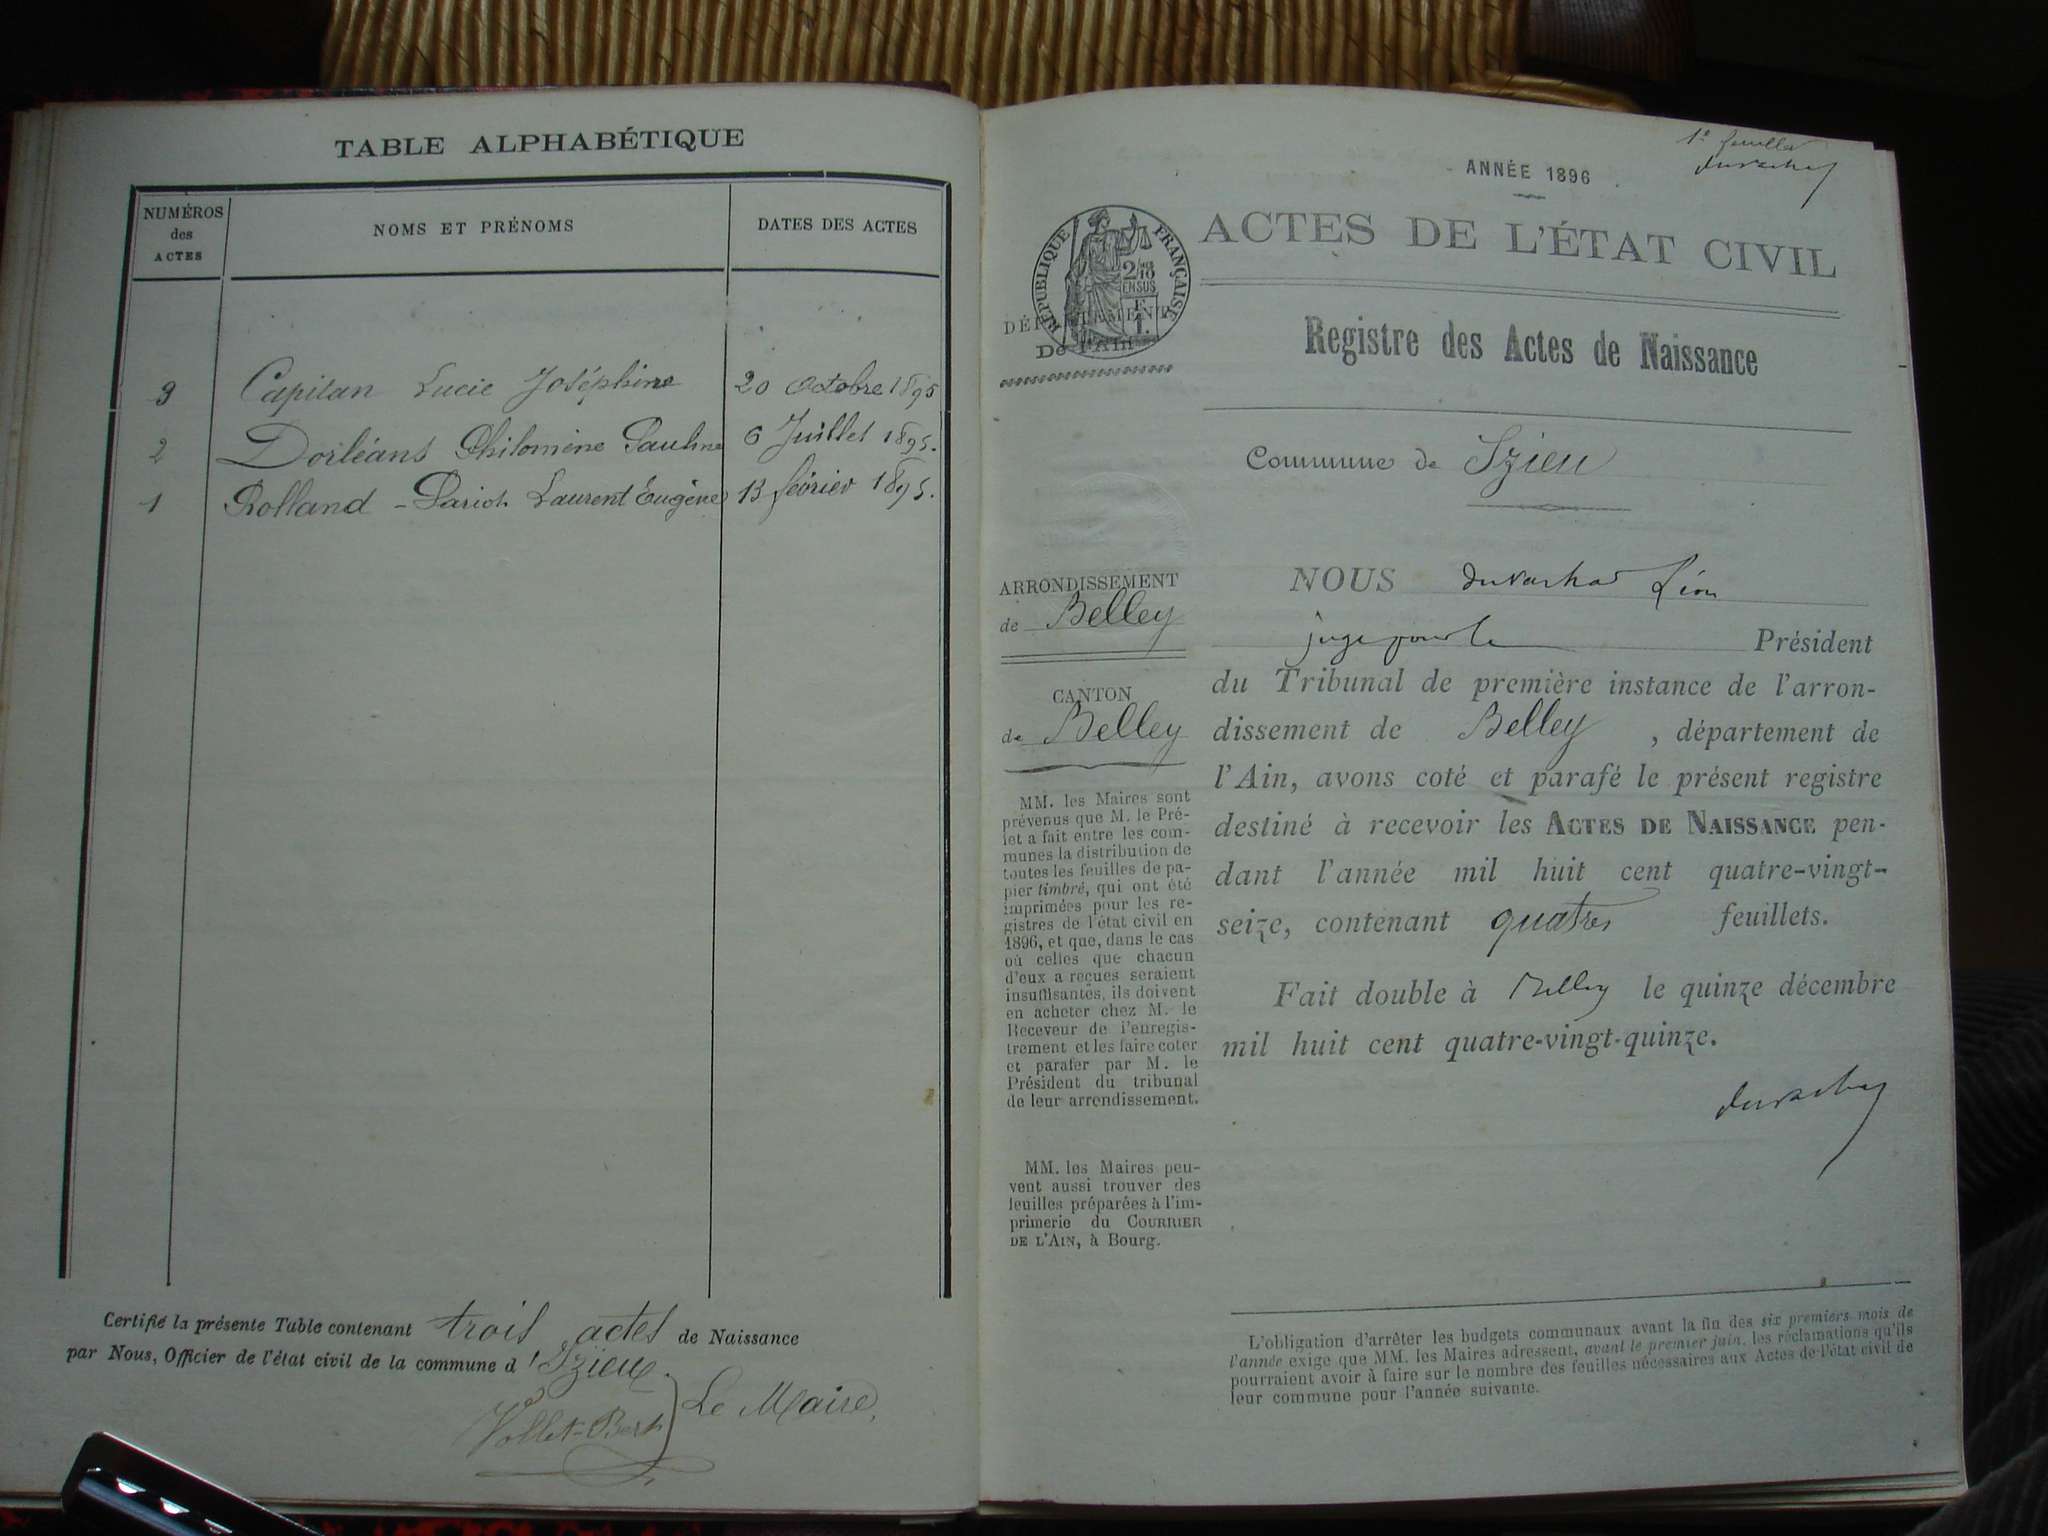 TABLE ALPHABÉTIQUE
NUMÉROS des ACTES
NOMS ET PRÉNOMS
DATES DES ACTES
3 Capitan Lucie Joséphine 20 Octobre 1895
2 Dorléans Philomène Pauline 6 Juillet 1895.
1 Rolland - Pariot Laurent Eugène 13 février 1895.
Certifié la présente Table contenant trois actes de Naissance
par Nous, Officier de l'état civil de la commune d'Izieu.
Le Maire,
Vollet-Bert
1e feuillet
ANNÉE 1896
ACTES DE L'ÉTAT CIVIL
RÉPUBLIQUE FRANÇAISE
DÉPARTEMENT
De l'Ain
Registre des Actes de Naissance
Commune de Izieu
ARRONDISSEMENT
de Belley
CANTON
de Belley
MM. les Maires sont
prévenus que M. le Pré-
fet a fait entre les com-
munes la distribution de
toutes les feuilles de pa-
pier timbré, qui ont été
imprimées pour les re-
gistres de l'état civil en
1896, et que, dans le cas
où celles que chacun
d'eux a reçues seraient
insuffisantes, ils doivent
en acheter chez M. le
Receveur de l'enregis-
trement et les faire coter
et parafer par M. le
Président du tribunal
de leur arrondissement.
MM. les Maires peu-
vent aussi trouver des
feuilles préparées à l'im-
primerie du COURRIER
DE L'AIN, à Bourg.
NOUS Léon
juge pour le Président
du Tribunal de première instance de l'arron-
dissement de Belley, département de
l'Ain, avons coté et parafé le présent registre
destiné à recevoir les ACTES DE NAISSANCE pen-
dant l'année mil huit cent quatre-vingt-
seize, contenant quatre feuillets.
Fait double à Belley le quinze décembre
mil huit cent quatre-vingt-quinze.
L'obligation d'arrêter les budgets communaux avant la fin des six premiers mois de
l'année exige que MM. les Maires adressent, avant le premier juin, les réclamations qu'ils
pourraient avoir à faire sur le nombre des feuilles nécessaires aux Actes de l'état civil de
leur commune pour l'année suivante.